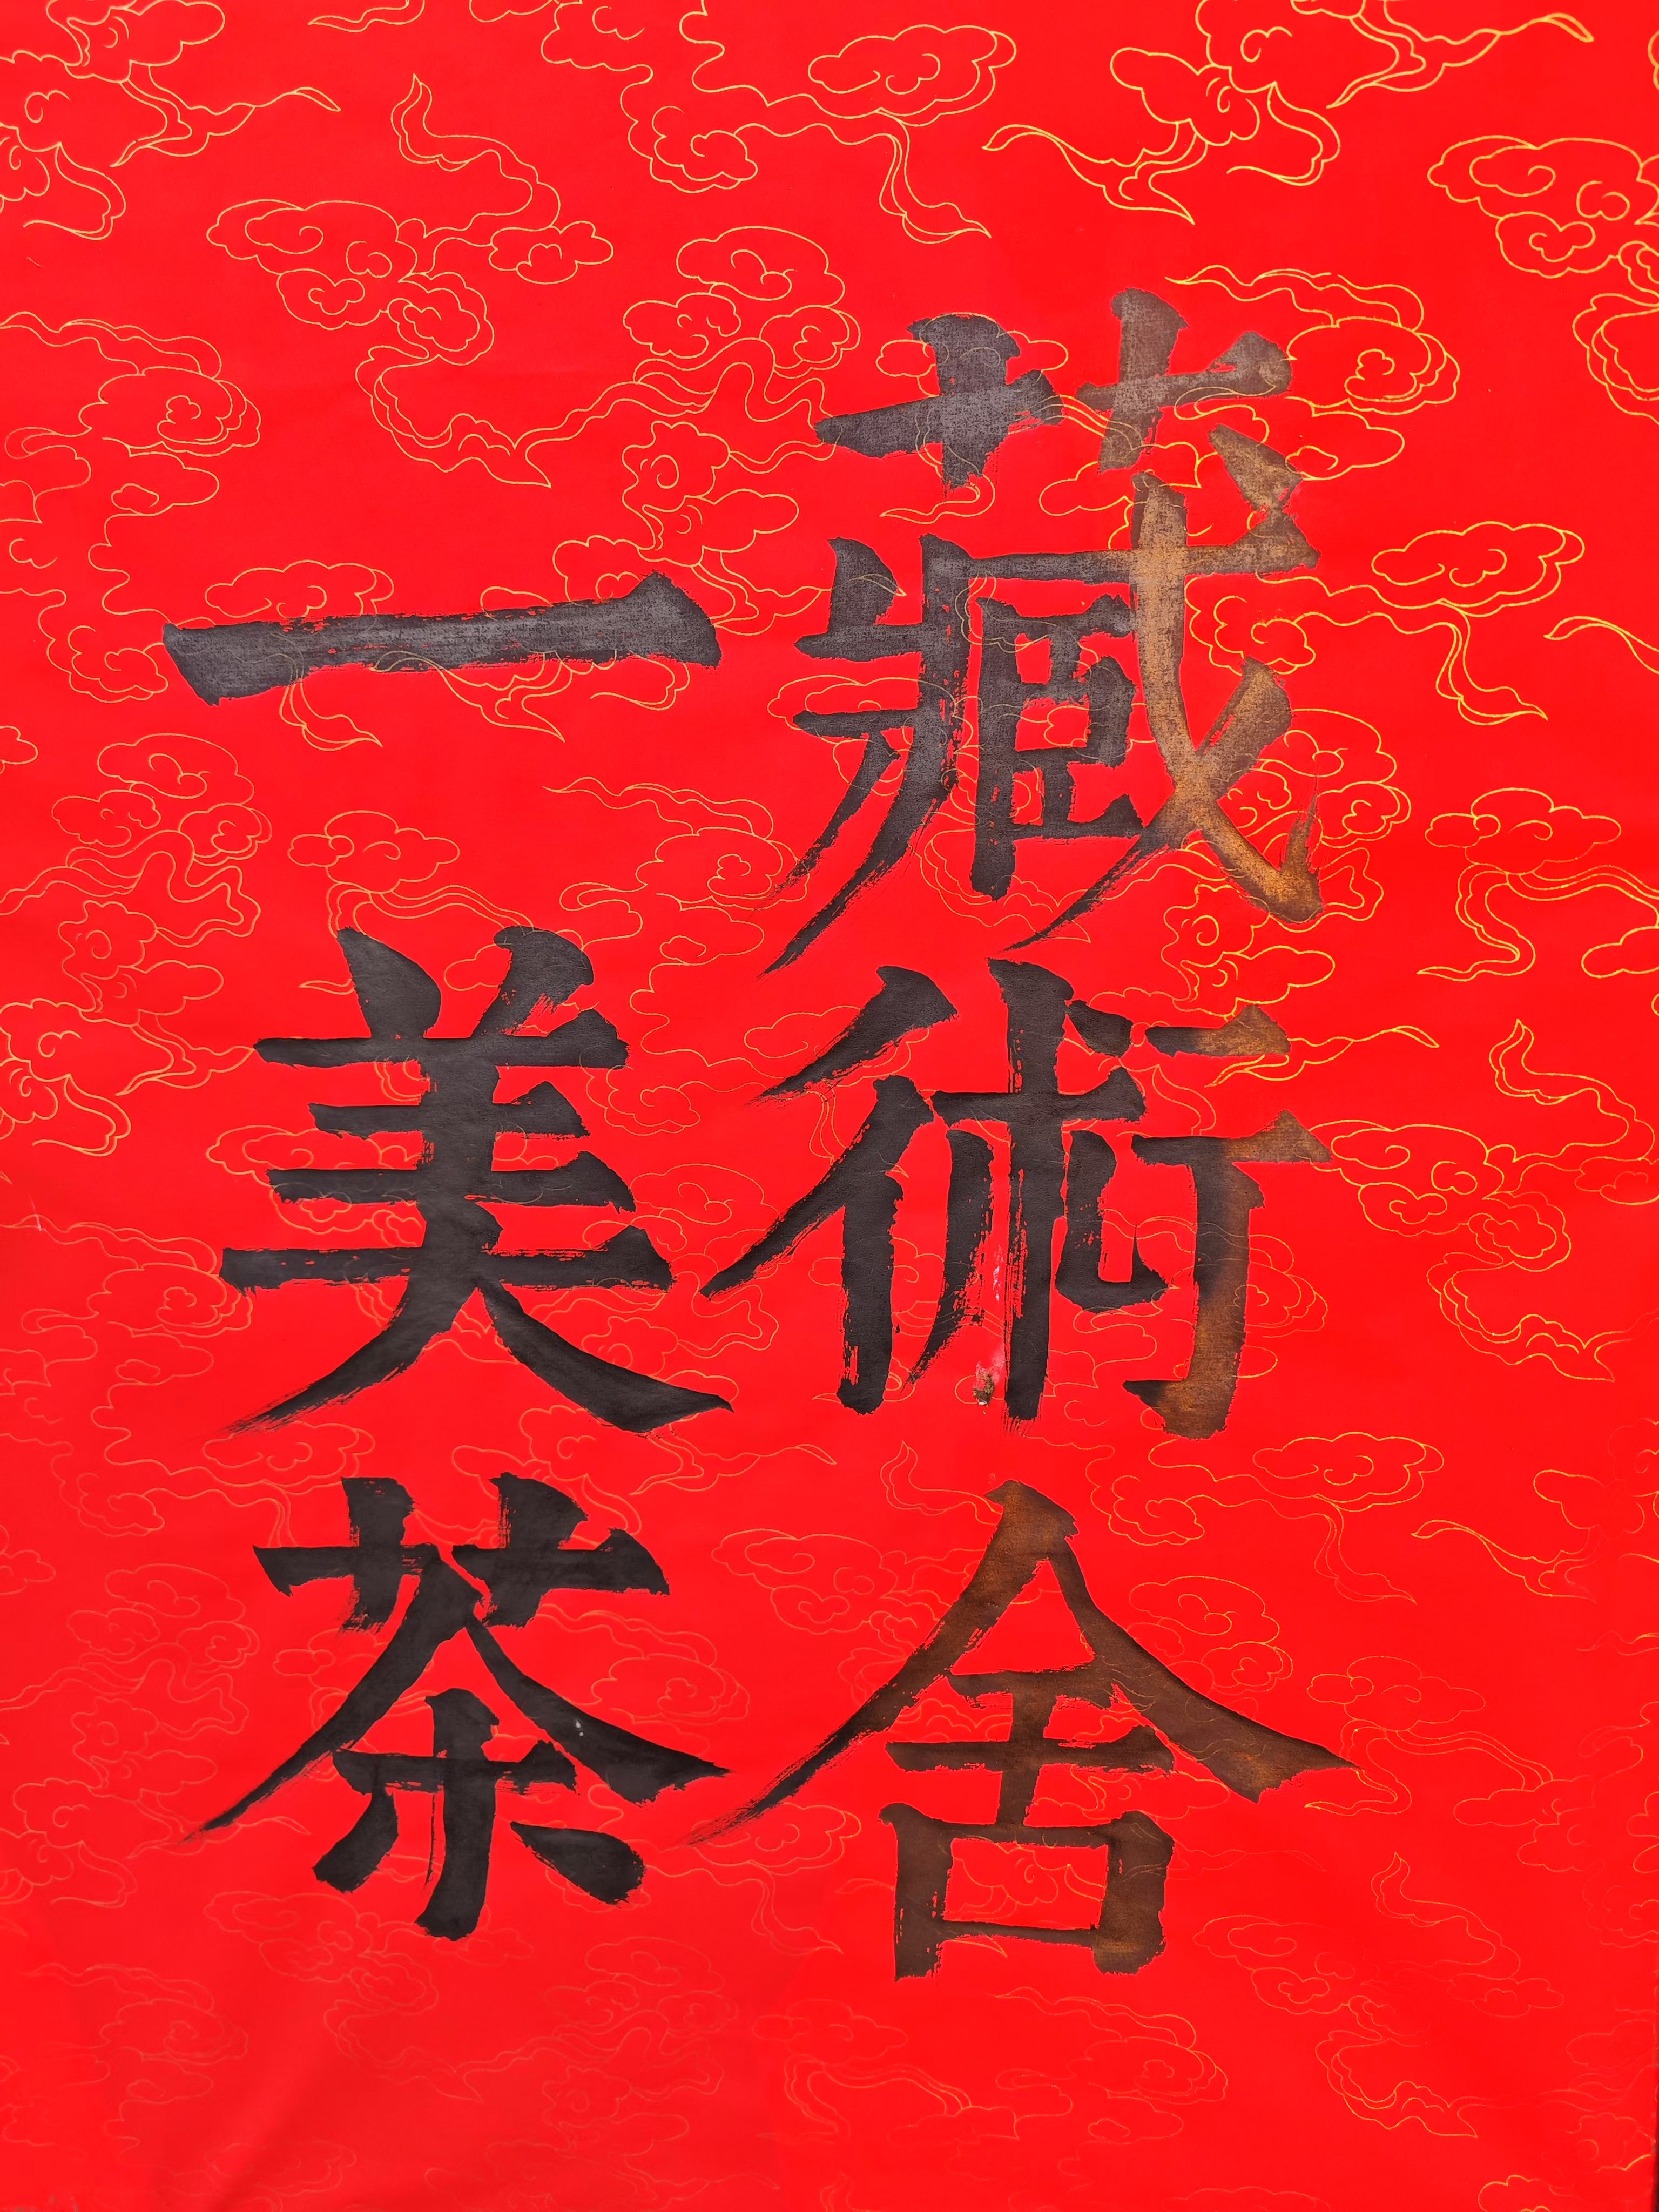 藏術舍
一美茶